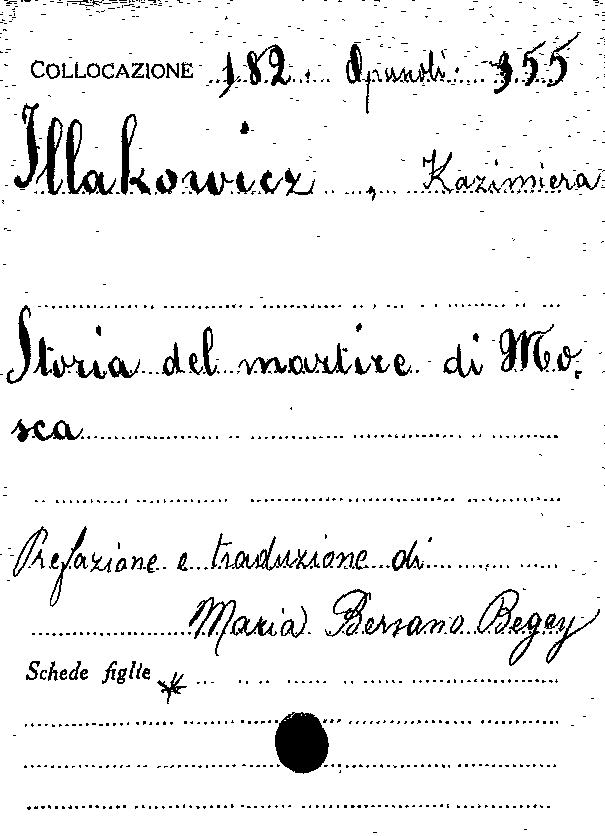 COLLOCAZIONE 182. Opuscoli. 355
Illakowicz, Kazimiera
Storia del martire di Mo.
sca
Prefazione e traduzione di
Maria Bersano Begey
Schede figlie *